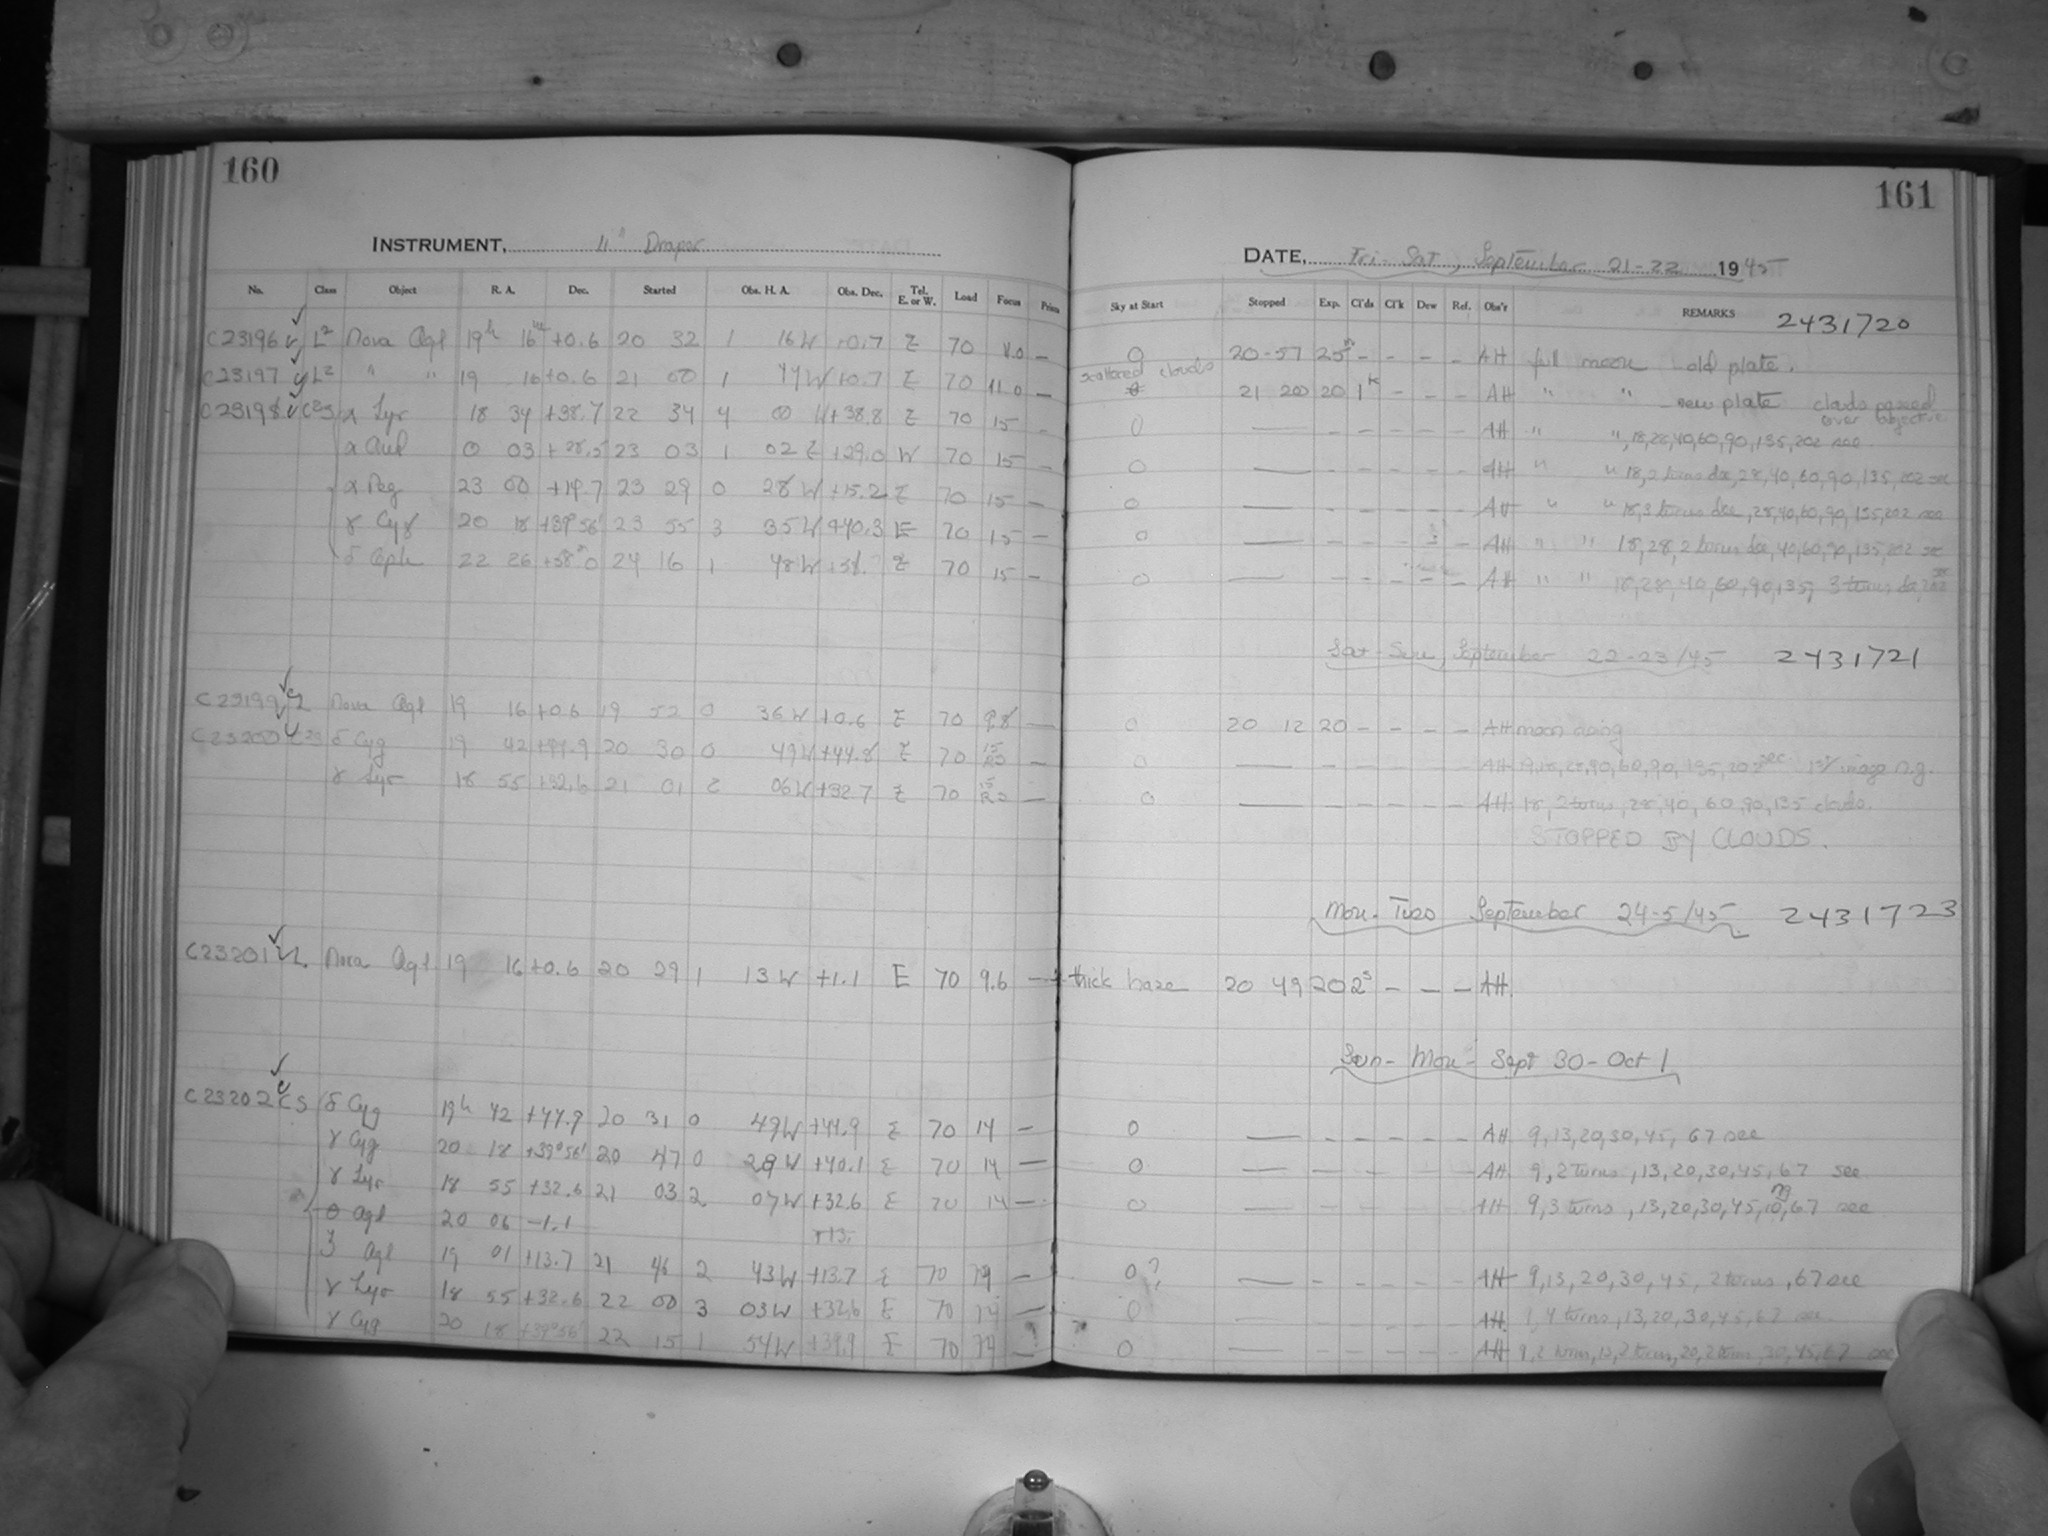 160
INSTRUMENT, 11" Draper
No. Class Object R. A. Dec. Started Obs. H. A. Obs. Dec. Tel. E. or W. Load Focus Prism
C23196 L2 Nova Aql 19h 16m +0.6 20 32 1 16 W +0.7 E 70 8.0 —
C23197 L2 " " 19 16 +0.6 21 00 1 44 W +0.7 E 70 11.0 —
C23198 α Lyr 18 34 +38.7 22 34 4 00 W +38.8 E 70 15 -
α And 0 03 +28.5 23 03 1 02 E +29.0 W 70 15 —
α Peg 23 00 +14.7 23 29 0 28 W +15.2 E 70 15 —
γ Cyg 20 18 +39°56' 23 55 3 35 W +40.3 E 70 15 —
δ Ceph 22 26 +58.0 24 16 1 48 W E 70 15 —
C23199 Nova Aql 19 16 +0.6 19 52 0 36 W +0.6 E 70 9.8 —
C23200 δ Cyg 19 42 +44.9 20 30 0 49 W +44.8 E 70 15 —
γ Lyr 18 55 +32.6 21 01 2 06 W +32.7 E 70 15 —
C23201 Nova Aql. 19 16 +0.6 20 29 1 13 W +1.1 E 70 9.6 —
C23202 CS δ Cyg 19h 42 +44.9 20 31 0 49 W +44.9 E 70 14 —
γ Cyg 20 18 +39°56' 20 47 0 29 W +40.1 E 70 14 —
γ Lyr 18 55 +32.6 21 03 2 07 W +32.6 E 70 14 —
θ Aql 20 06 -1.1 +13.
ζ Aql 19 01 +13.7 21 46 2 43 W +13.7 E 70 14 —
γ Lyr 18 55 +32.6 22 00 3 03 W +32.6 E 70 14 —
γ Cyg 20 18 +39°56' 22 15 1 54 W +39.9 E 70 14 —
161
DATE, Fri - Sat, September 21-22 1945
Sky at Start Stopped Exp. Cl'ds Cl'k Dew Ref. Obs'r REMARKS 2431720
0 20-57 25m - - - - AH full moon old plate.
scattered clouds 21 20 20 1 - - - AH " " new plate clouds passed over objective
0 — - - - - AH " ", 18, 28, 40, 60, 90, 135, 202 sec
0 — - - - - AH " " 18, 2 turns dec, 28, 40, 60, 90, 135, 202 sec
0 — - - - - AH " " 18, 3 turns dec, 28, 40, 60, 90, 135, 202 sec
0 — - - - - AH " " 18, 28, 2 turns dec, 40, 60, 90, 135, 202 sec
0 — - - - - AH " " 18, 28, 40, 60, 90, 135, 3 turns dec, 202 sec
Sat - Sun, September 22-23/45 2431721
0 20 12 20 - - - - AH moon rising
0 — - - - - AH 28, 40, 60, 90, 135, 202 sec. 1st image n.g.
0 — - - - - AH 18, 2 turns, 28, 40, 60, 90, 135 clouds.
STOPPED BY CLOUDS.
Mon - Tues September 24-5/45 2431723
thick haze 20 49 20 2s - - - AH.
Sun - Mon - Sept 30 - Oct 1
0 — - - - - AH 9, 13, 20, 30, 45, 67 sec
0 — - - - - AH 9, 2 turns, 13, 20, 30, 45, 67 sec
0 — - - - - AH 9, 3 turns, 13, 20, 30, 45, 10, 67 sec
0? — - - - - AH 9, 13, 20, 30, 45, 2 turns, 67 sec
0 AH 4 turns, 13, 20, 30, 45, 67 sec
0 — - - - - AH 9, 2 turns, 13, 2 turns, 20, 2 turns, 30, 45, 67 sec